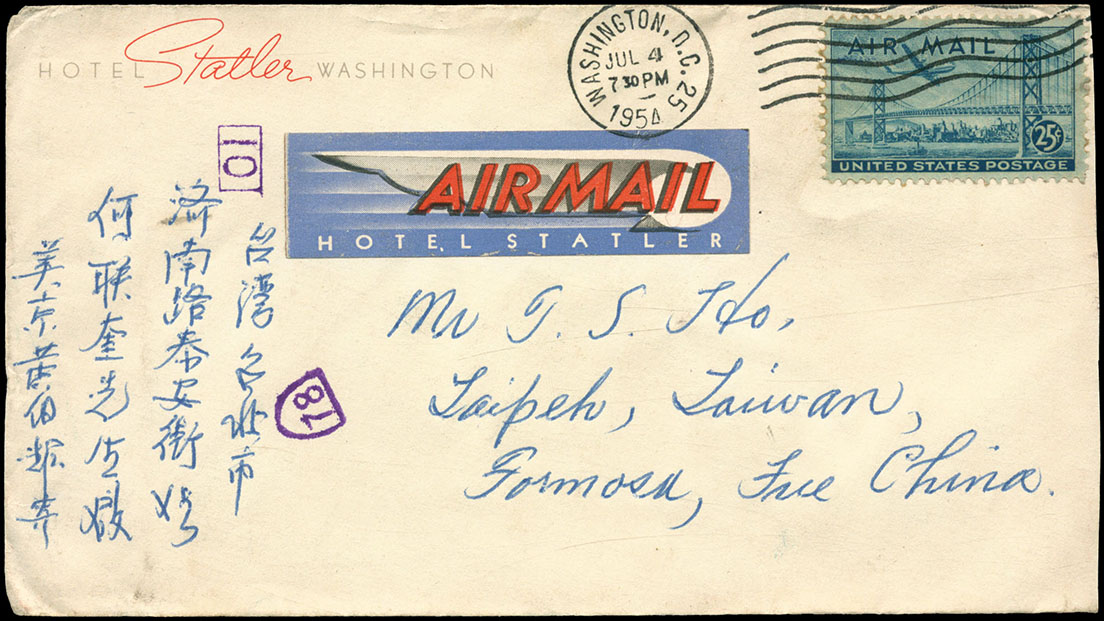 HOTEL Statler WASHINGTON
WASHINGTON, D.C. 25
JUL 4
7 30 PM
1954
AIR MAIL
25¢
UNITED STATES POSTAGE
AIR MAIL
HOTEL STATLER
101
78
Mr T. S. Ho,
Taipeh, Taiwan,
Formosa, Free China.
台湾台北市
济南路泰安街
何联奎先生啟
美京黄伯